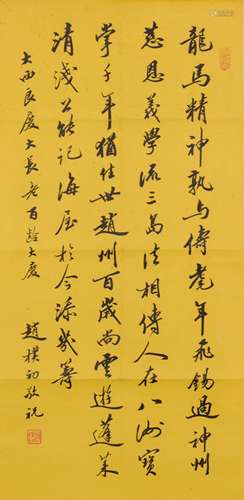 龍馬精神孰与儔耄年飛錫過神州
慈恩義學流三島法相傳人在八洲寳
掌千年猶住世趙州百歲尚雲遊蓬萊
清淺公能記海屋於今添幾籌
大西良慶大長老百龄大慶
趙樸初敬祝